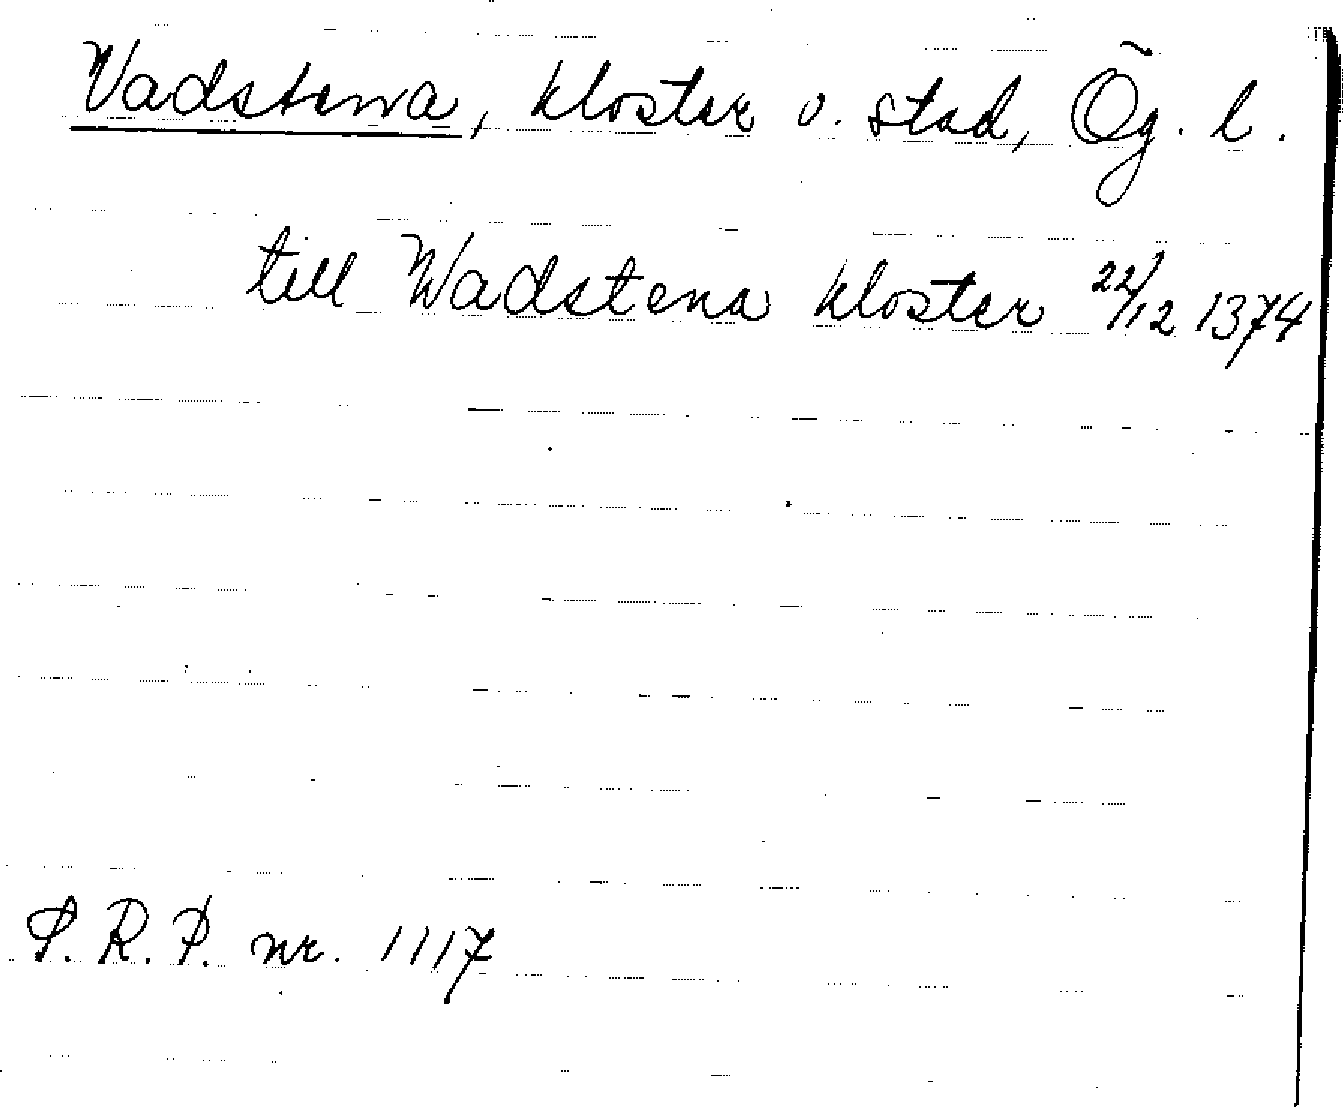 Vadstena, kloster o. stad, Ög. l.
till Wadstena kloster 22/12 1374
S.R.P. nr. 1117